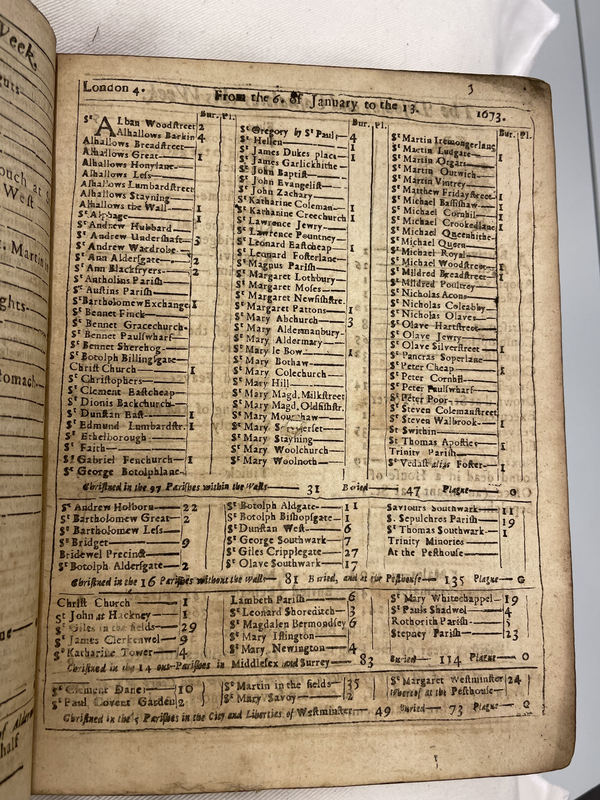 Week,
London 4. From the 6. of January to the 13. 1673.
3
Bur. Pl.
St ALban Woodstreet 2
Alhallows Barkin 4
Alhallows Breadstreet
Alhallows Great 1
Alhallows Honylane
Alhallows Less
Alhallows Lumbardstreet
Alhallows Stayning
Alhallows the Wall 1
St Alphage 1
St Andrew Hubbard
St Andrew Undershaft 3
St Andrew Wardrobe
St Ann Aldersgate 2
St Ann Blackfryers 2
St Antholins Parish
St Austins Parish
St Bartholomew Exchange 1
St Bennet Finck
St Bennet Gracechurch
St Bennet Paulswharf
St Bennet Sherehog
St Botolph Billingsgate
Christ Church 1
St Christophers
St Clement Eastcheap
St Dionis Backchurch
St Dunstan East 1
St Edmund Lumbardstr. 1
St Ethelborough
St Faith
St Gabriel Fenchurch 1
St George Botolphlane
Bur. Pl.
St Gregory by St Pauls 4
St Hellen 1
St James Dukes place 1
St James Garlickhithe
St John Baptist
St John Evangelist
St John Zachary
St Katharine Coleman 1
St Katharine Creechurch 1
St Lawrence Jewry
St Lawrence Pountney
St Leonard Eastcheap 1
St Leonard Fosterlane
St Magnus Parish
St Margaret Lothbury
St Margaret Moses
St Margaret Newfishstre.
St Margaret Pattons 1
St Mary Abchurch 3
St Mary Aldermanbury
St Mary Aldermary
St Mary le Bow 1
St Mary Bothaw
St Mary Colechurch
St Mary Hill
St Mary Magd. Milkstreet
St Mary Magd. Oldfishstr.
St Mary
St Mary
St Mary Stayning
St Mary Woolchurch
St Mary Woolnoth
Bur. Pl.
St Martin Iremongerlane
St Martin Ludgate 1
St Martin Orgars
St Martin Outwich
St Martin Vintrey
St Matthew Fridaystreet 1
St Michael Bassishaw 1
St Michael Cornhil 1
St Michael Crookedlane 1
St Michael Queenhithe
St Michael Quern
St Michael Royal
St Michael Woodstreet 1
St Mildred Breadstreet 1
St Mildred Poultrey
St Nicholas Acons
St Nicholas Coleabby
St Nicholas Olaves
St Olave Hartstreet
St Olave Jewry
St Olave Silverstreet 1
St Pancras Soperlane
St Peter Cheap 1
St Peter Cornhil
St Peter Paulswharf
St Peter Poor
St Steven Colemanstreet
St Steven Walbrook 1
St Swithin
St Thomas Apostle 1
Trinity Parish
St Vedast alias Foster 1
Christned in the 97 Parishes within the Walls 31 Buried 47 Plague 0
St Andrew Holborn 22
St Bartholomew Great 2
St Bartholomew Less
St Bridget 9
Bridewel Precinct
St Botolph Aldersgate 2
St Botolph Aldgate 11
St Botolph Bishopsgate 1
St Dunstan West 6
St George Southwark 7
St Giles Cripplegate 27
St Olave Southwark 17
Saviours Southwark 11
S. Sepulchres Parish 19
St Thomas Southwark 1
Trinity Minories
At the Pesthouse
Christned in the 16 Parishes without the Walls 81 Buried, and at the Pesthouse 135 Plague 0
Christ Church 1
St John at Hackney 1
St Giles in the fields 29
St James Clerkenwel 9
St Katharine Tower 4
Lambeth Parish 6
St Leonard Shoreditch 3
St Magdalen Bermondsey 6
St Mary Islington
St Mary Newington 4
St Mary Whitechappel 19
St Pauls Shadwel 4
Rothorith Parish 5
Stepney Parish 23
Christned in the 14 out-Parishes in Middlesex and Surrey 83 Buried 114 Plague 0
St Clement Danes 10
St Paul Covent Garden 2
St Martin in the fields 35
St Mary Savoy 2
St Margaret Westminster 24
Whereof at the Pesthouse
Christned in the 5 Parishes in the City and Liberties of Westminster 49 Buried 73 Plague 0